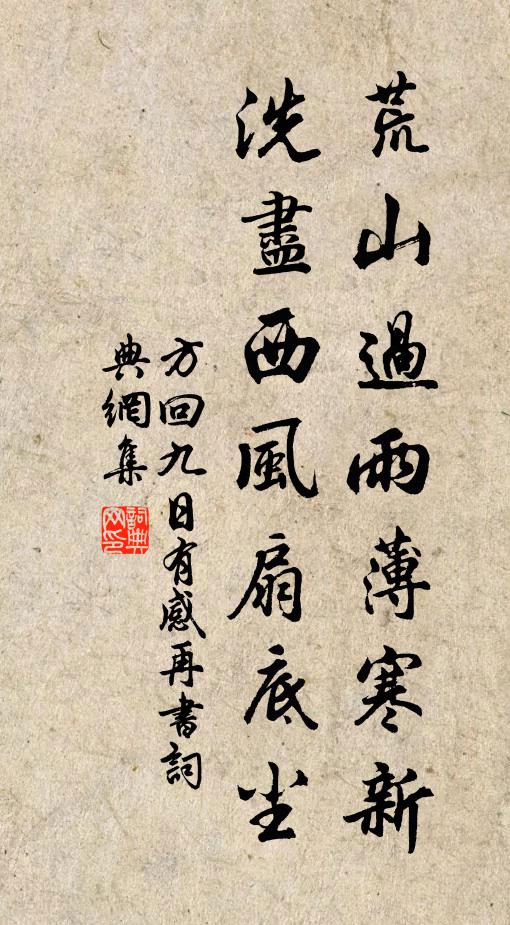 荒山過雨薄寒新
洗盡西風扇底尘
方回九日有感再書詞
典網集
詞典
网印